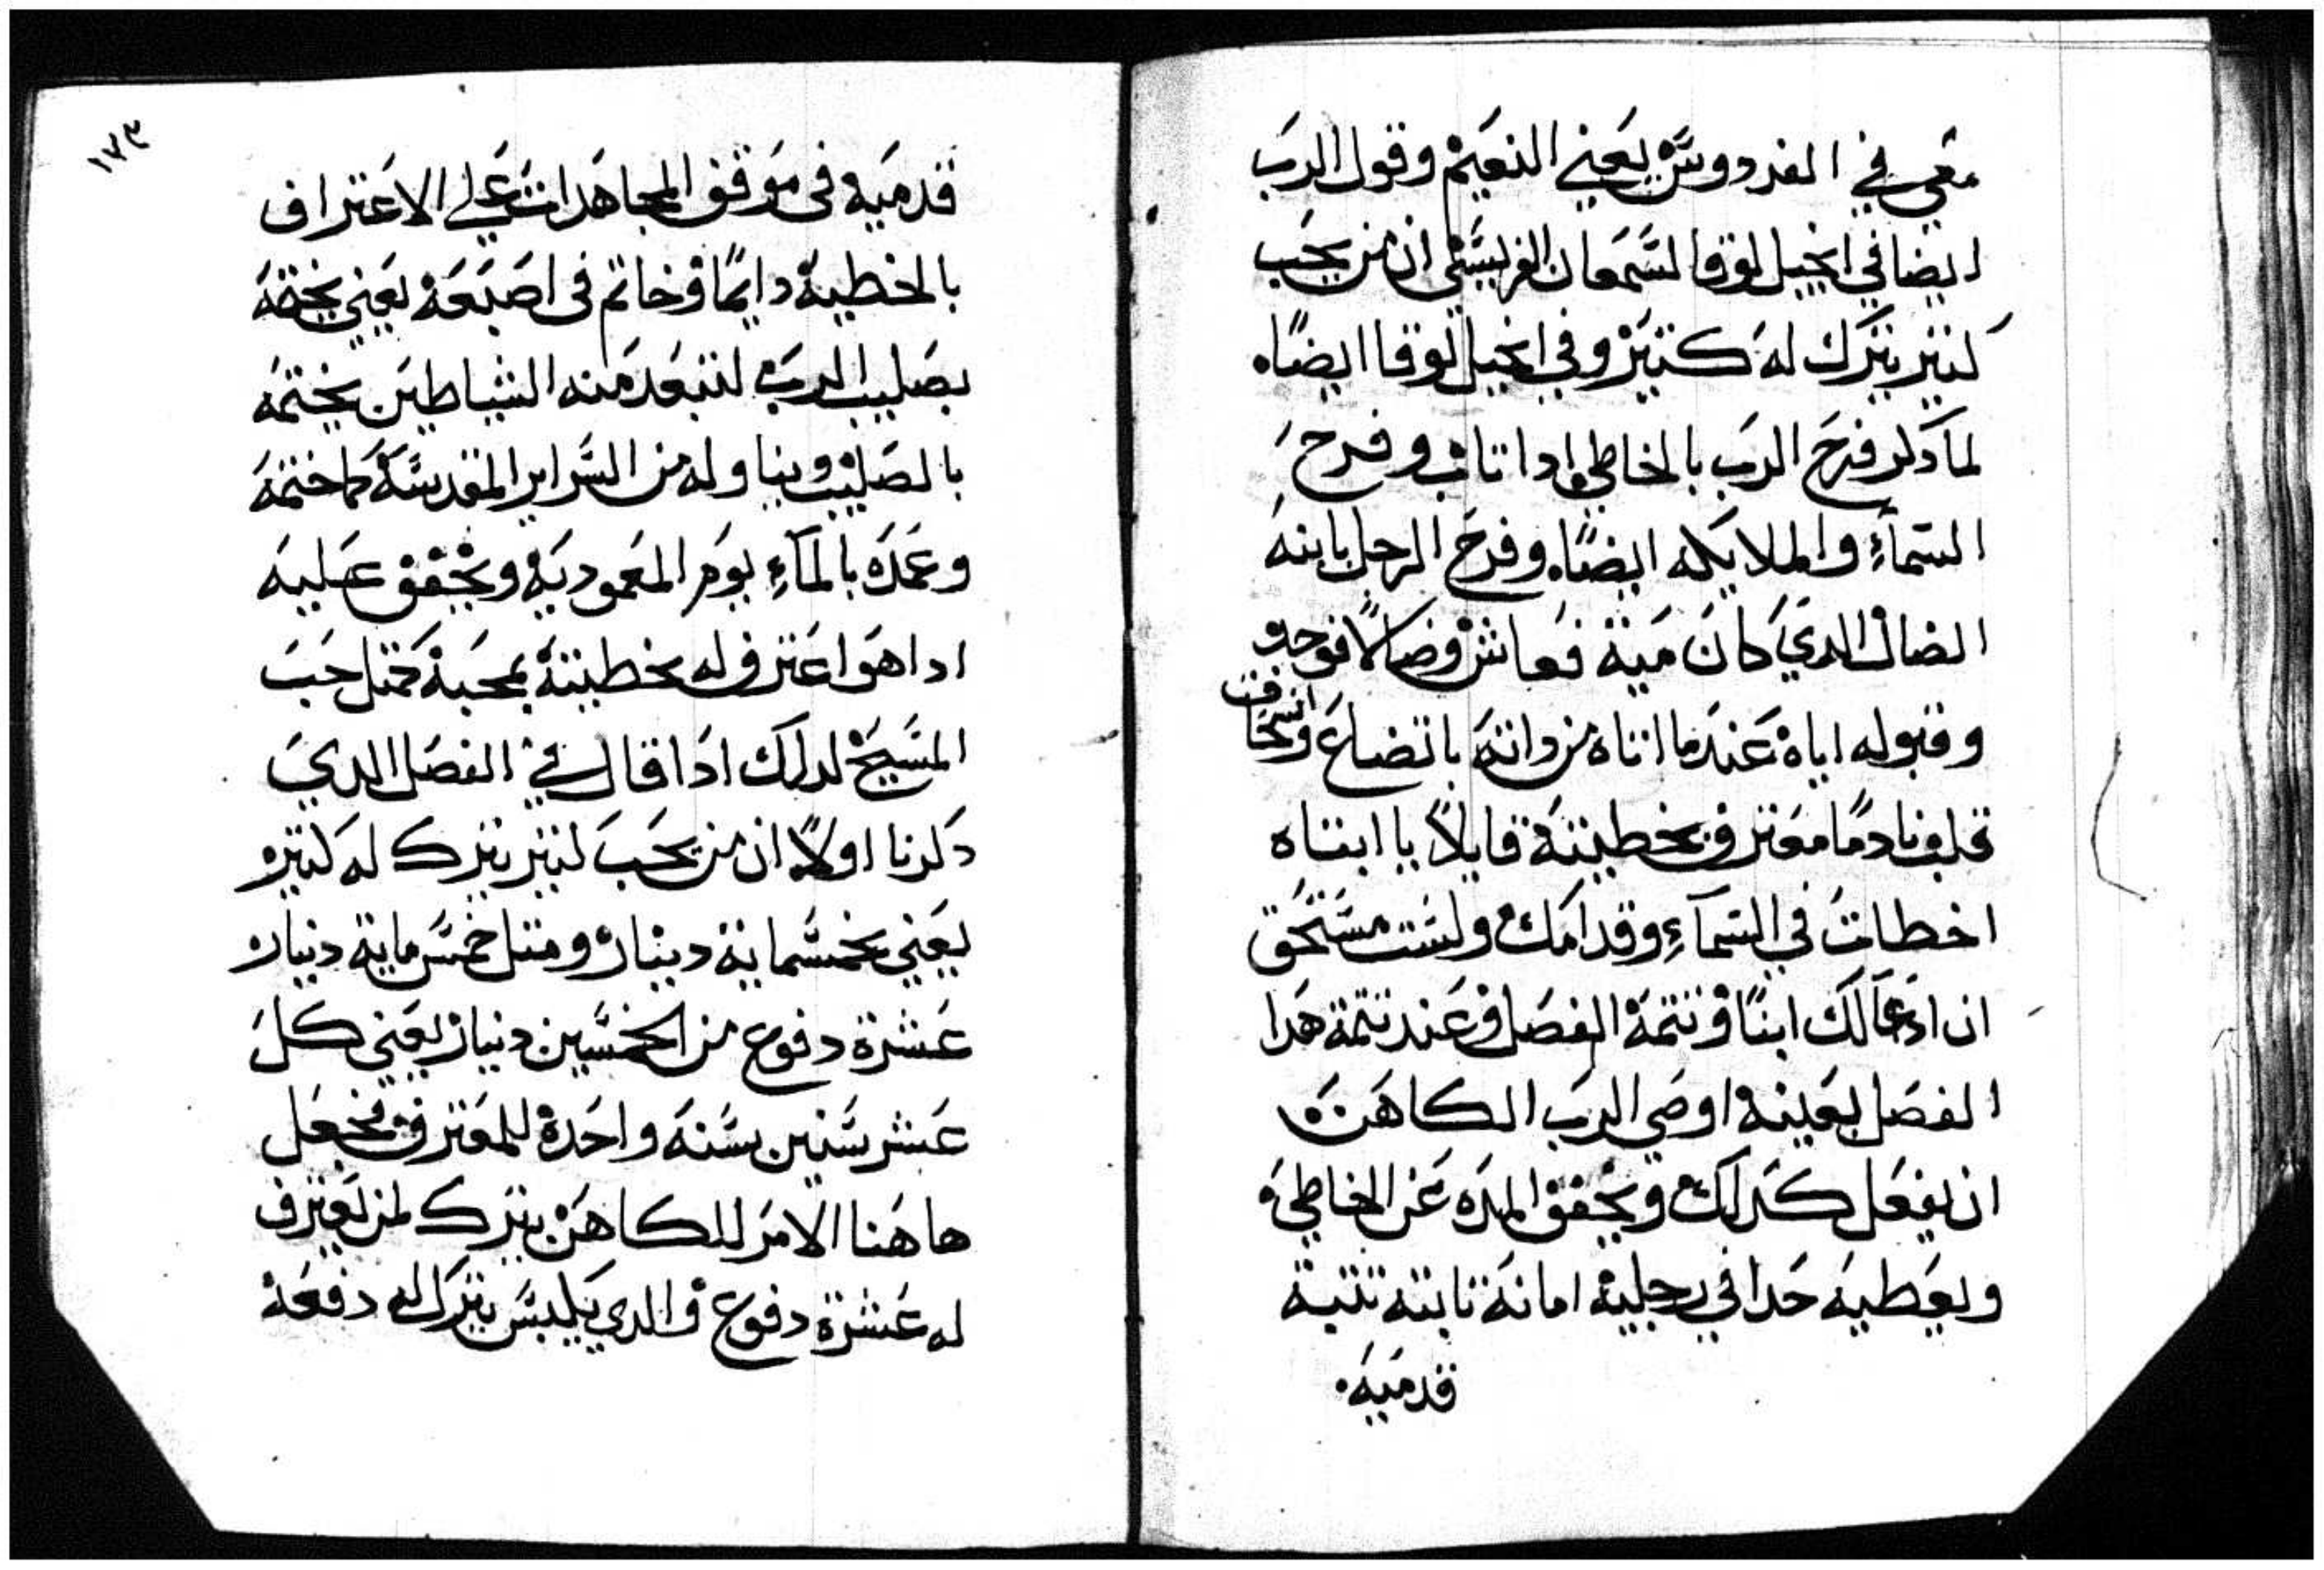 معي في الفردووس يعني النعيم وقول الرب
ايضا في انجيل لوقا لسمعان الفريسي ان من يحب
كتير يترك له كتير وفي انجيل لوقا ايضًا
لما دكر فرح الرب بالخاطي ادا تاب وفرح
السمآء والملايكه ايضًا وفرح الرجل بابنه
الضال الدي كان ميت فعاش وضالًا فوجد
وقبوله اياه عندما اتاه من داته باتضاع وانسحاق
قلب نادمًا معترف بخطيته قايلًا يا ابتاه
اخطات في السمآء وقدامك ولست مستحق
ان ادعا لك ابنًا وتتمة الفصل وعند تتمة هدا
الفصل بعينه اوصي الرب الكاهن
ان يفعل كدلك ويخفف المده عن الخاطي
ويعطيه حدا في رجليه امانة تابته تتبت
قدميه
١٧٣
قدميه في موقف المجاهدات علي الاعتراف
بالخطية دايمًا وخاتم في اصبعه يعني يختمه
بصليب الرب لتبعد منه الشياطين يختمه
بالصليب ويناوله من السراير المقدسة كما ختمه
وعمده بالمآء يوم المعمودية ويخفف عليه
ادا هو اعترف له بخطيته بمحبة كمتل حب
المسيح لدلك ادا قال في الفصل الدي
دكرنا اولًا ان من يحب كتير يترك له كتير
يعني بخمسماية دينار ومتل خمس ماية دينار
عشرة دفوع من الخمسين دينار يعني كل
عشر سنين بسنه واحدة للمعترف فجعل
هاهنا الامر للكاهن يترك لمن يعترف
له عشرة دفوع والدي يلبس يترك له دفعة